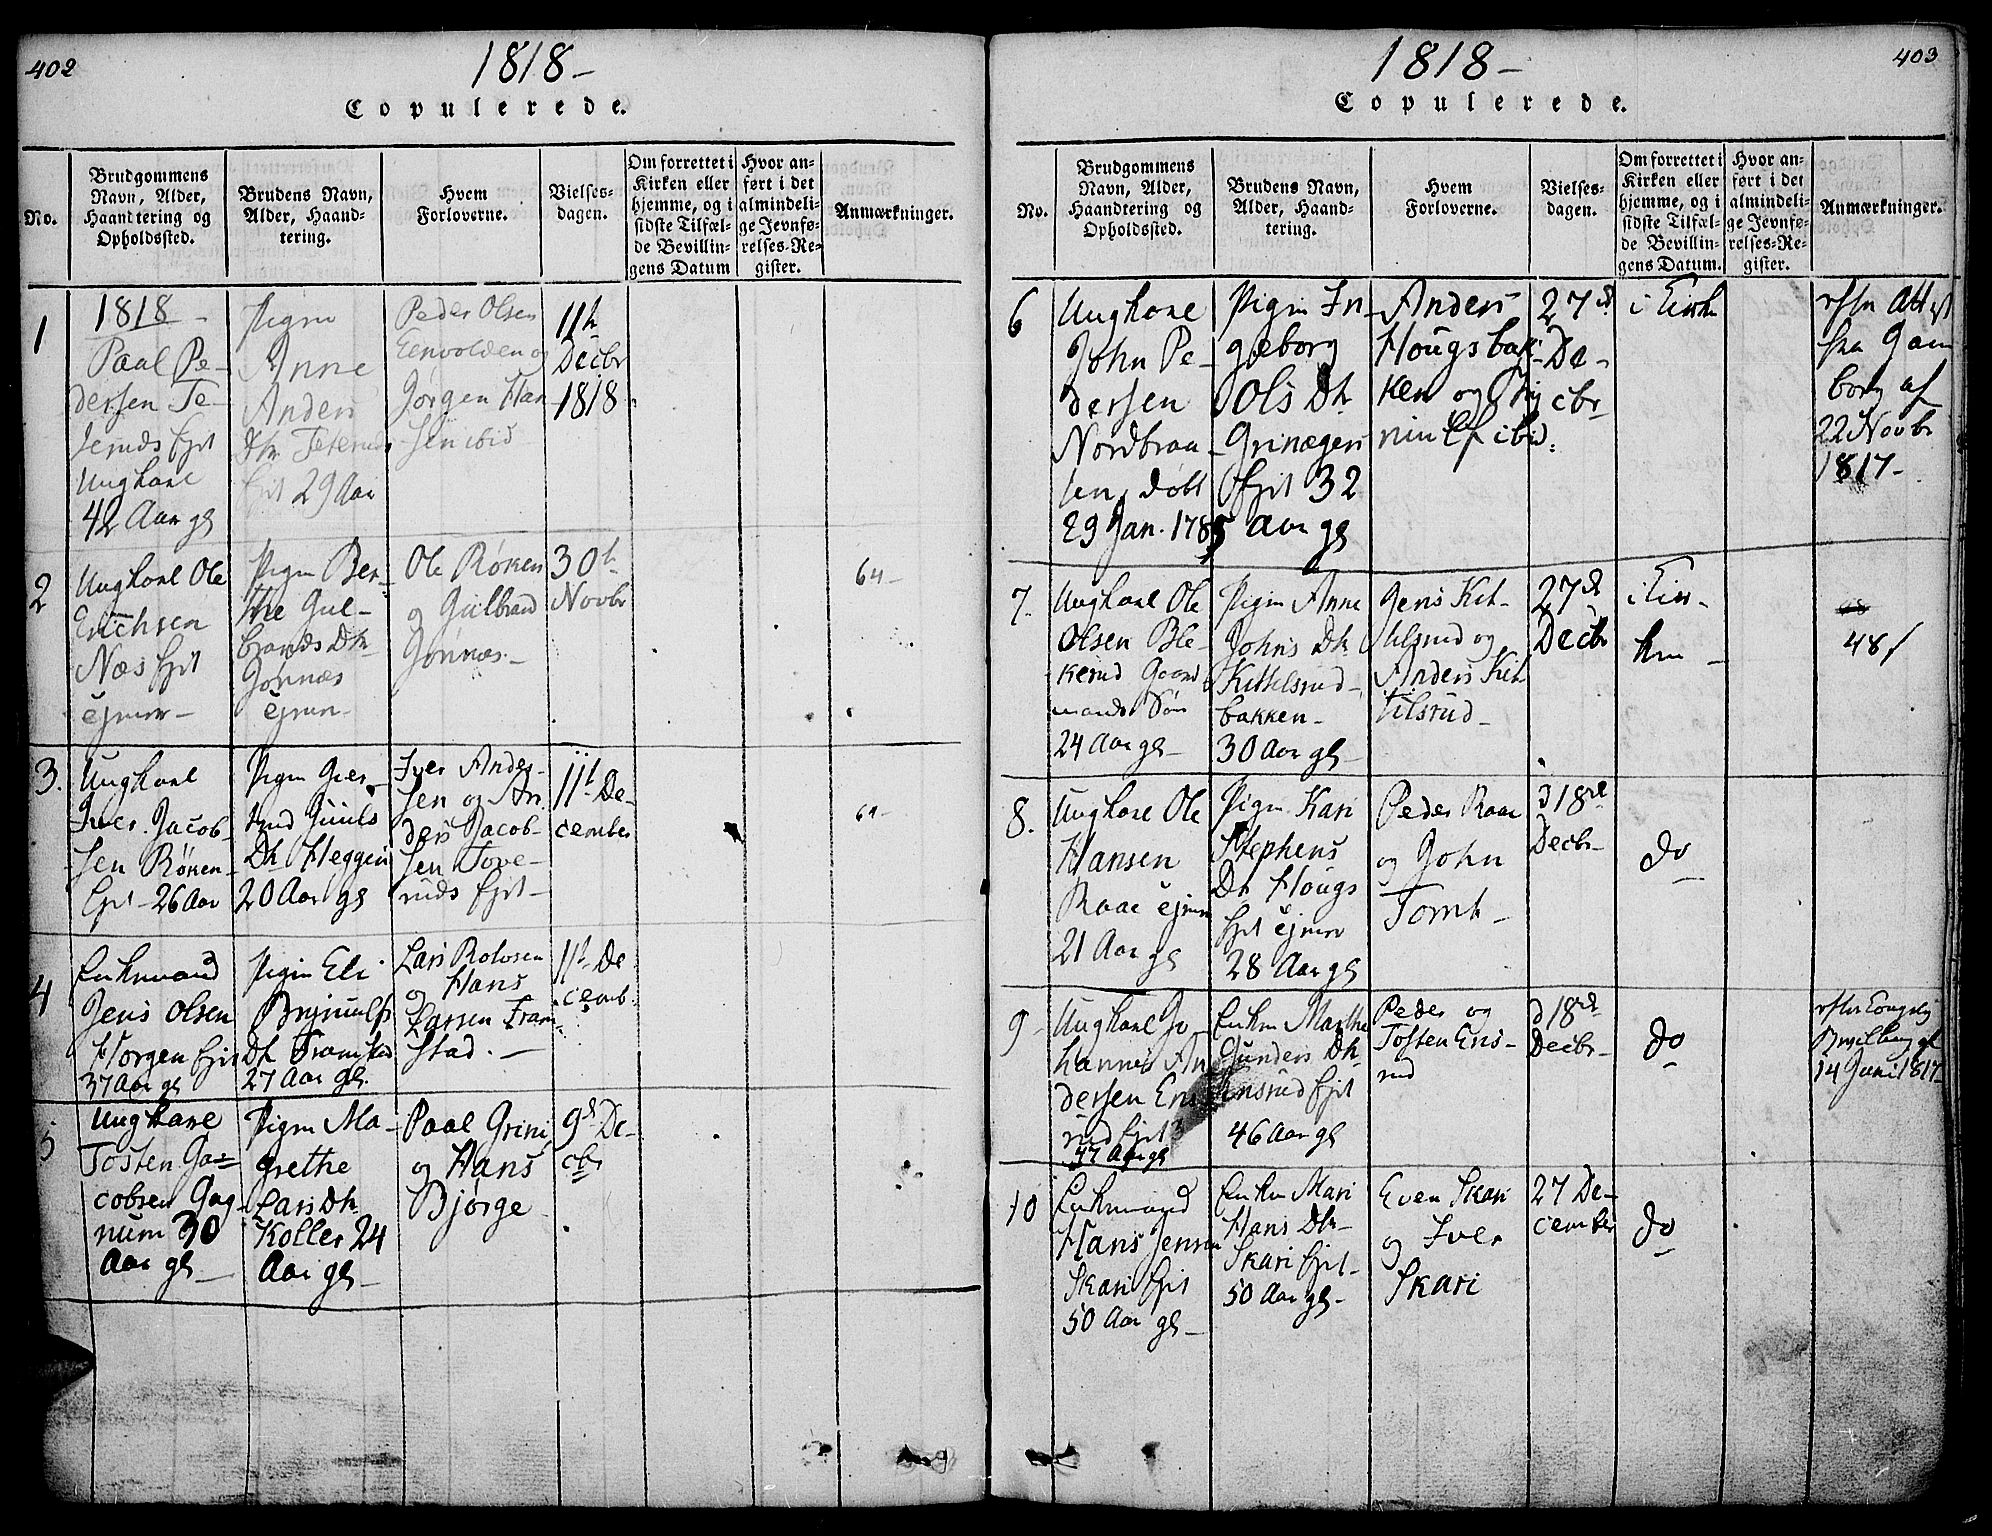 402
1818 –
Copulerede.
No.
Brudgommens
Navn, Alder,
Haandtering og
Opholdssted.
Brudens Navn,
Alder, Haand-
tering.
Hvem
Forloverne.
Vielses-
dagen.
Om forrettet i
Kirken eller
hjemme, og i
sidste Tilfæl-
de Bevillin-
gens Datum
Hvor an-
ført i det
almindeli-
ge Jevnfø-
relses-Re-
gister.
Anmærkninger.
1
1818 –
Paal Pe-
dersen Te-
Ungkarl
42 Aar gl
Pigen
Anne
Anders
Dtr
29 Aar
Peder Olsen
og
Jørgen Han-
sen ibid
11te
Decbr
1818
2
Ungkarl Ole
Erichsen
Næs Ejet
Pigen Ber-
the Gul-
brands Dtr
Gørnæs
Ole Røken
og Gulbrand
Gørnæs –
30te
Novbr
64 –
3.
Ungkarl
Iver Jacob-
sen Røken-
Ejet – 26 Aar
Pigen Gjer-
trud Guuls
Dtr Heggen
20 Aar gl
Iver Anders-
sen og An-
ders Jacob-
sen Tove-
ruds Ejet –
11te De-
cember
61 –
4
Enkemand
Jens Olsen
Horgen Ejet
37 Aar gl
Pigen Eli
Brynulfs
Dtr Framstad
27 Aar gl.
Lars Rolvsen
og Hans
Larsen Fram-
stad. –
11te De-
cemb.
5
Ungkarl
Tosten Ja-
cobsen Gag-
num 30
Aar gl –
Pigen Ma-
grethe
Lars Dtr
Koller 24
Aar gl –
Paal Grini
og Hans
Bjørge
9d De-
cbr
403
1818 –
Copulerede.
No.
Brudgommens
Navn, Alder,
Haandtering og
Opholdssted.
Brudens Navn,
Alder, Haand-
tering.
Hvem
Forloverne.
Vielses-
dagen.
Om forrettet i
Kirken eller
hjemme, og i
sidste Tilfæl-
de Bevillin-
gens Datum.
Hvor an-
ført i det
almindeli-
ge Jevnfø-
relses-Re-
gister.
Anmærkninger.
6
Ungkarl
John Pe-
dersen
Nordbraa-
ten, døbt
29 Jan. 1785
Pigen In-
geborg
Ols Dtr
Grinagers
Ejet 32
Aar gl
Anders
Hougsbak-
ken og
ibid:
27d
De-
cbr
i Kirken
efter Attest
fra
af
22 Novbr
1817 –
7.
Ungkarl Ole
Olsen Ble-
kerud Gaard
mands Søn
24 Aar gl –
Pigen Anne
Johns Dtr
Kittelsrud-
bakken –
30 Aar gl –
Jens Kit-
telsrud og
Anders Kit-
telsrud –
27d
Decbr
i Kir-
ken –
48/
8.
Ungkarl Ole
Hansen
Raae
21 Aar gl
Pigen Kari
Stephens
Dtr Hougs
Ejet
28 Aar gl
Peder Raae
og John
Tomt –
d 18de
Decbr –
do
9
Ungkarl Jo-
hannes An-
dersen Ens-
rud Ejet
37 Aar gl
Enken Marthe
Gunders Dtr
Ensrud Ejet
46 Aar gl
Peder og
Tosten Ens-
rud
d 18de
Decbr –
do
efter Kongelig
Bevilling af
14 Juni 1817
10
Enkemand
Hans Jensen
Skari Ejet
50 Aar gl –
Enken Mari
Hans Dtr –
Skari Ejet –
50 Aar gl –
Even Skari
og Iver
Skari
27 De-
cember
do